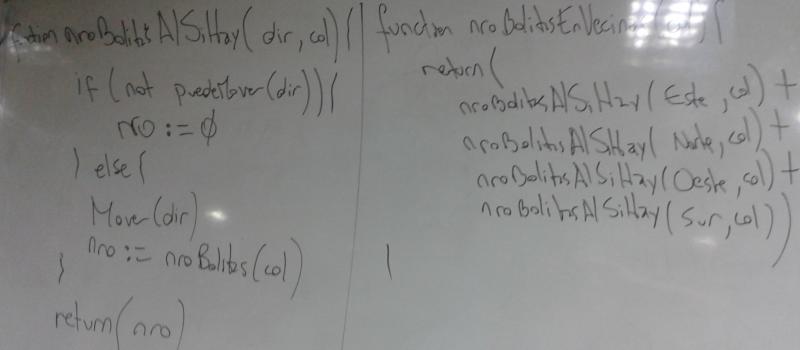 function nroBolitasAlSiHay(dir, col){
if (not puedeMover(dir)){
nro := 0
} else {
Mover(dir)
nro := nroBolitas(col)
}
return(nro)
function nroBolitasEnVecinas(col){
return(
nroBolitasAlSiHay(Este, col) +
nroBolitasAlSiHay(Norte, col) +
nroBolitasAlSiHay(Oeste, col) +
nroBolitasAlSiHay(Sur, col))
}